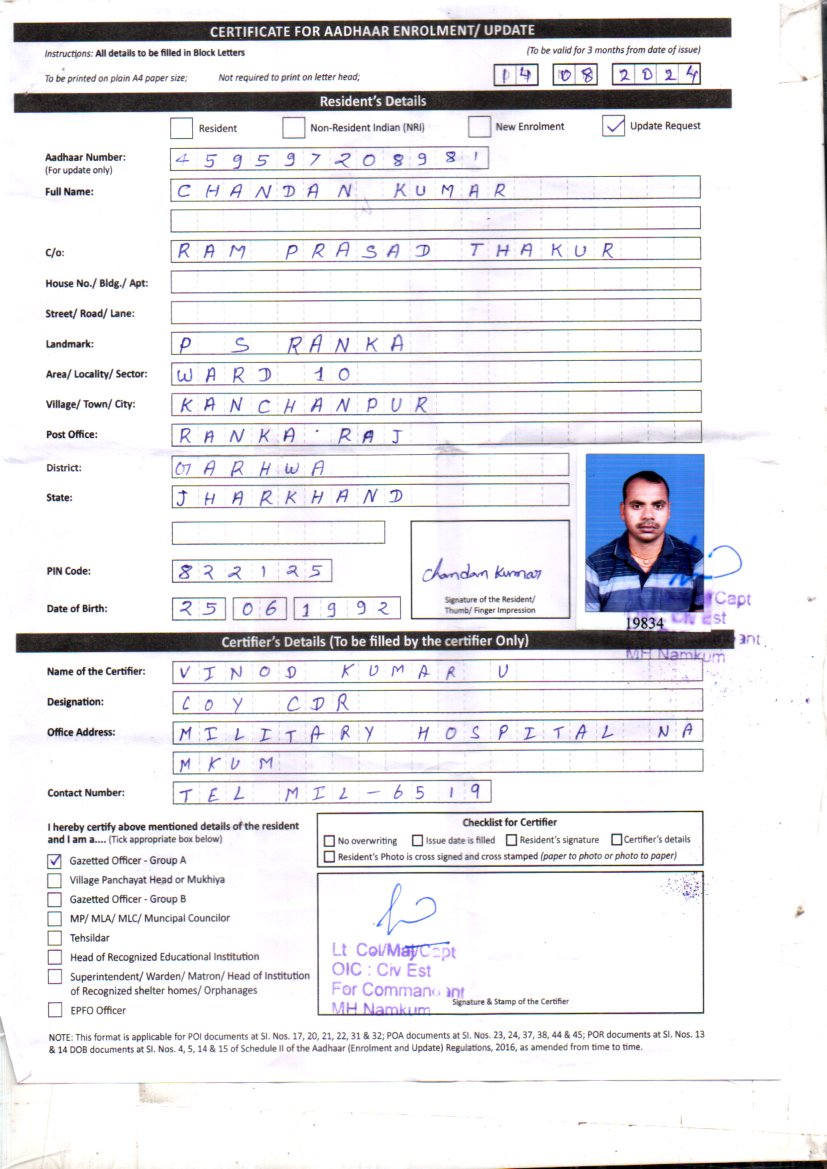 CERTIFICATE FOR AADHAAR ENROLMENT/ UPDATE
Instructions: All details to be filled in Block Letters
(To be valid for 3 months from date of issue)
To be printed on plain A4 paper size; Not required to print on letter head;
14 08 2024
Resident's Details
Resident Non-Resident Indian (NRI) New Enrolment Update Request
Aadhaar Number: 459597208981
(For update only)
Full Name: CHANDAN KUMAR
C/o: RAM PRASAD THAKUR
House No./ Bldg./ Apt:
Street/ Road/ Lane:
Landmark: P S RANKA
Area/ Locality/ Sector: WARD 10
Village/ Town/ City: KANCHANPUR
Post Office: RANKA RAJ
District: GARHWA
State: JHARKHAND
PIN Code: 822125
Chandan Kumar
Signature of the Resident/
Thumb/ Finger Impression
Date of Birth: 25 06 1992
19834
/Capt
Civ Est
ant
MH Namkum
Certifier's Details (To be filled by the certifier Only)
Name of the Certifier: VINOD KUMAR U
Designation: COY CDR
Office Address: MILITARY HOSPITAL NA
MKUM
Contact Number: TEL MIL-6519
I hereby certify above mentioned details of the resident
and I am a.... (Tick appropriate box below)
Gazetted Officer - Group A
Village Panchayat Head or Mukhiya
Gazetted Officer - Group B
MP/ MLA/ MLC/ Muncipal Councilor
Tehsildar
Head of Recognized Educational Institution
Superintendent/ Warden/ Matron/ Head of Institution
of Recognized shelter homes/ Orphanages
EPFO Officer
Checklist for Certifier
No overwriting Issue date is filled Resident's signature Certifier's details
Resident's Photo is cross signed and cross stamped (paper to photo or photo to paper)
Lt Col/Maj/Capt
OIC : Civ Est
For Commandant
MH Namkum
Signature & Stamp of the Certifier
NOTE: This format is applicable for POI documents at Sl. Nos. 17, 20, 21, 22, 31 & 32; POA documents at Sl. Nos. 23, 24, 37, 38, 44 & 45; POR documents at Sl. Nos. 13
& 14 DOB documents at Sl. Nos. 4, 5, 14 & 15 of Schedule II of the Aadhaar (Enrolment and Update) Regulations, 2016, as amended from time to time.